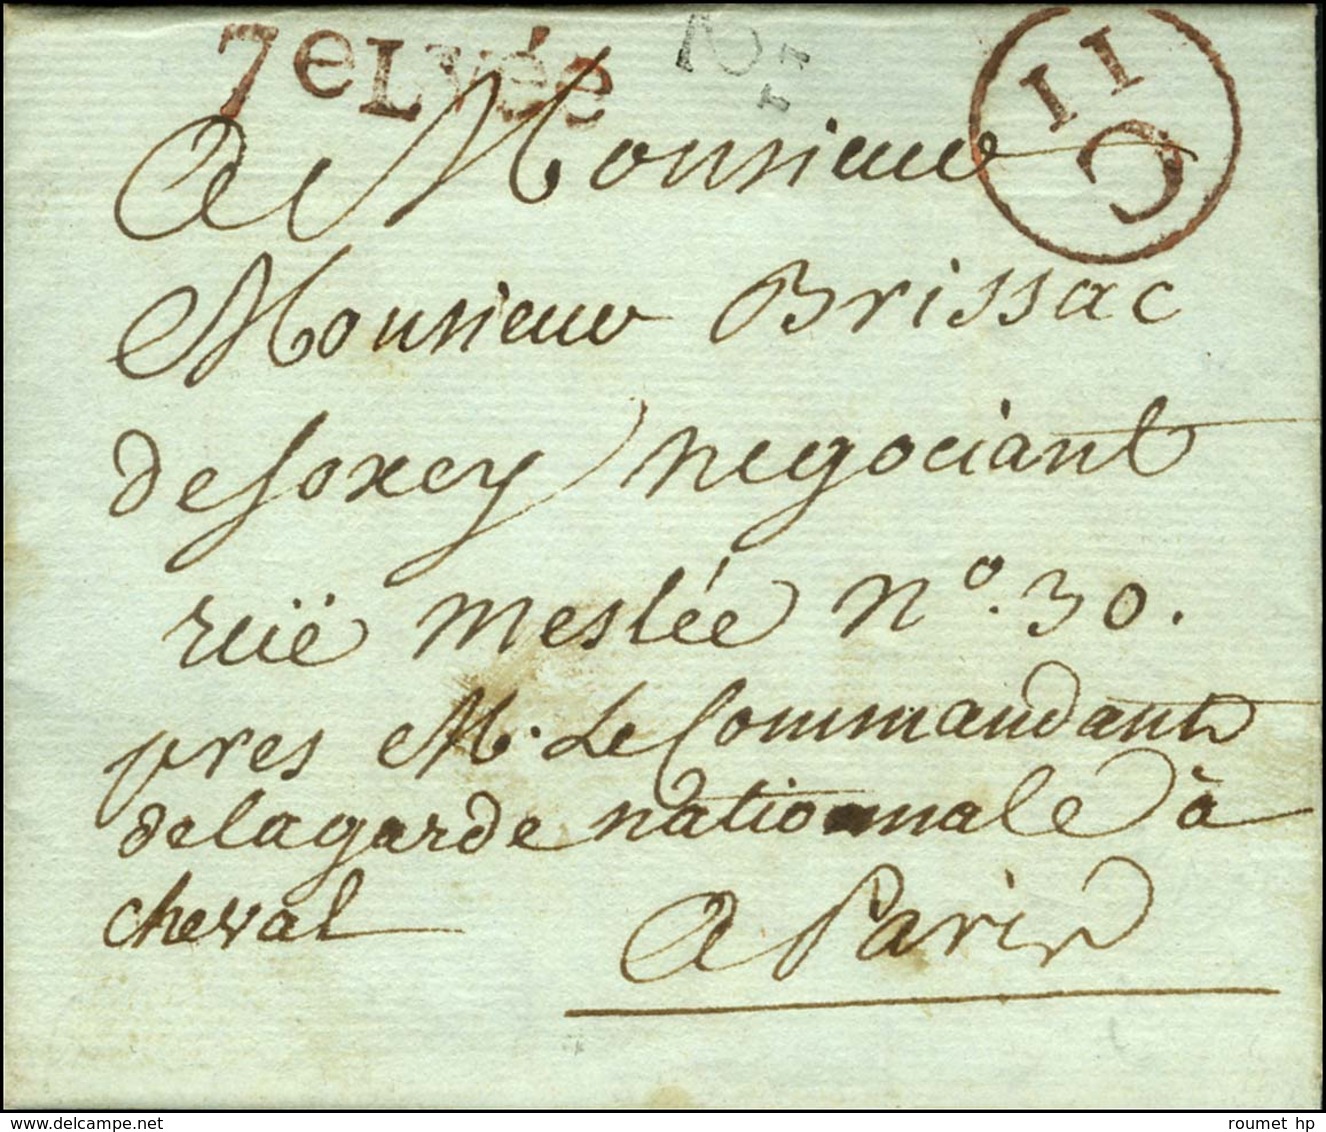 7eLvée
11
C
A Monsieur
Monsieur Brissac
de foxey negociant
ruë meslée n°. 30.
pres M. Le Commandant
de la garde nationnale à
cheval
A Paris
roumet hp